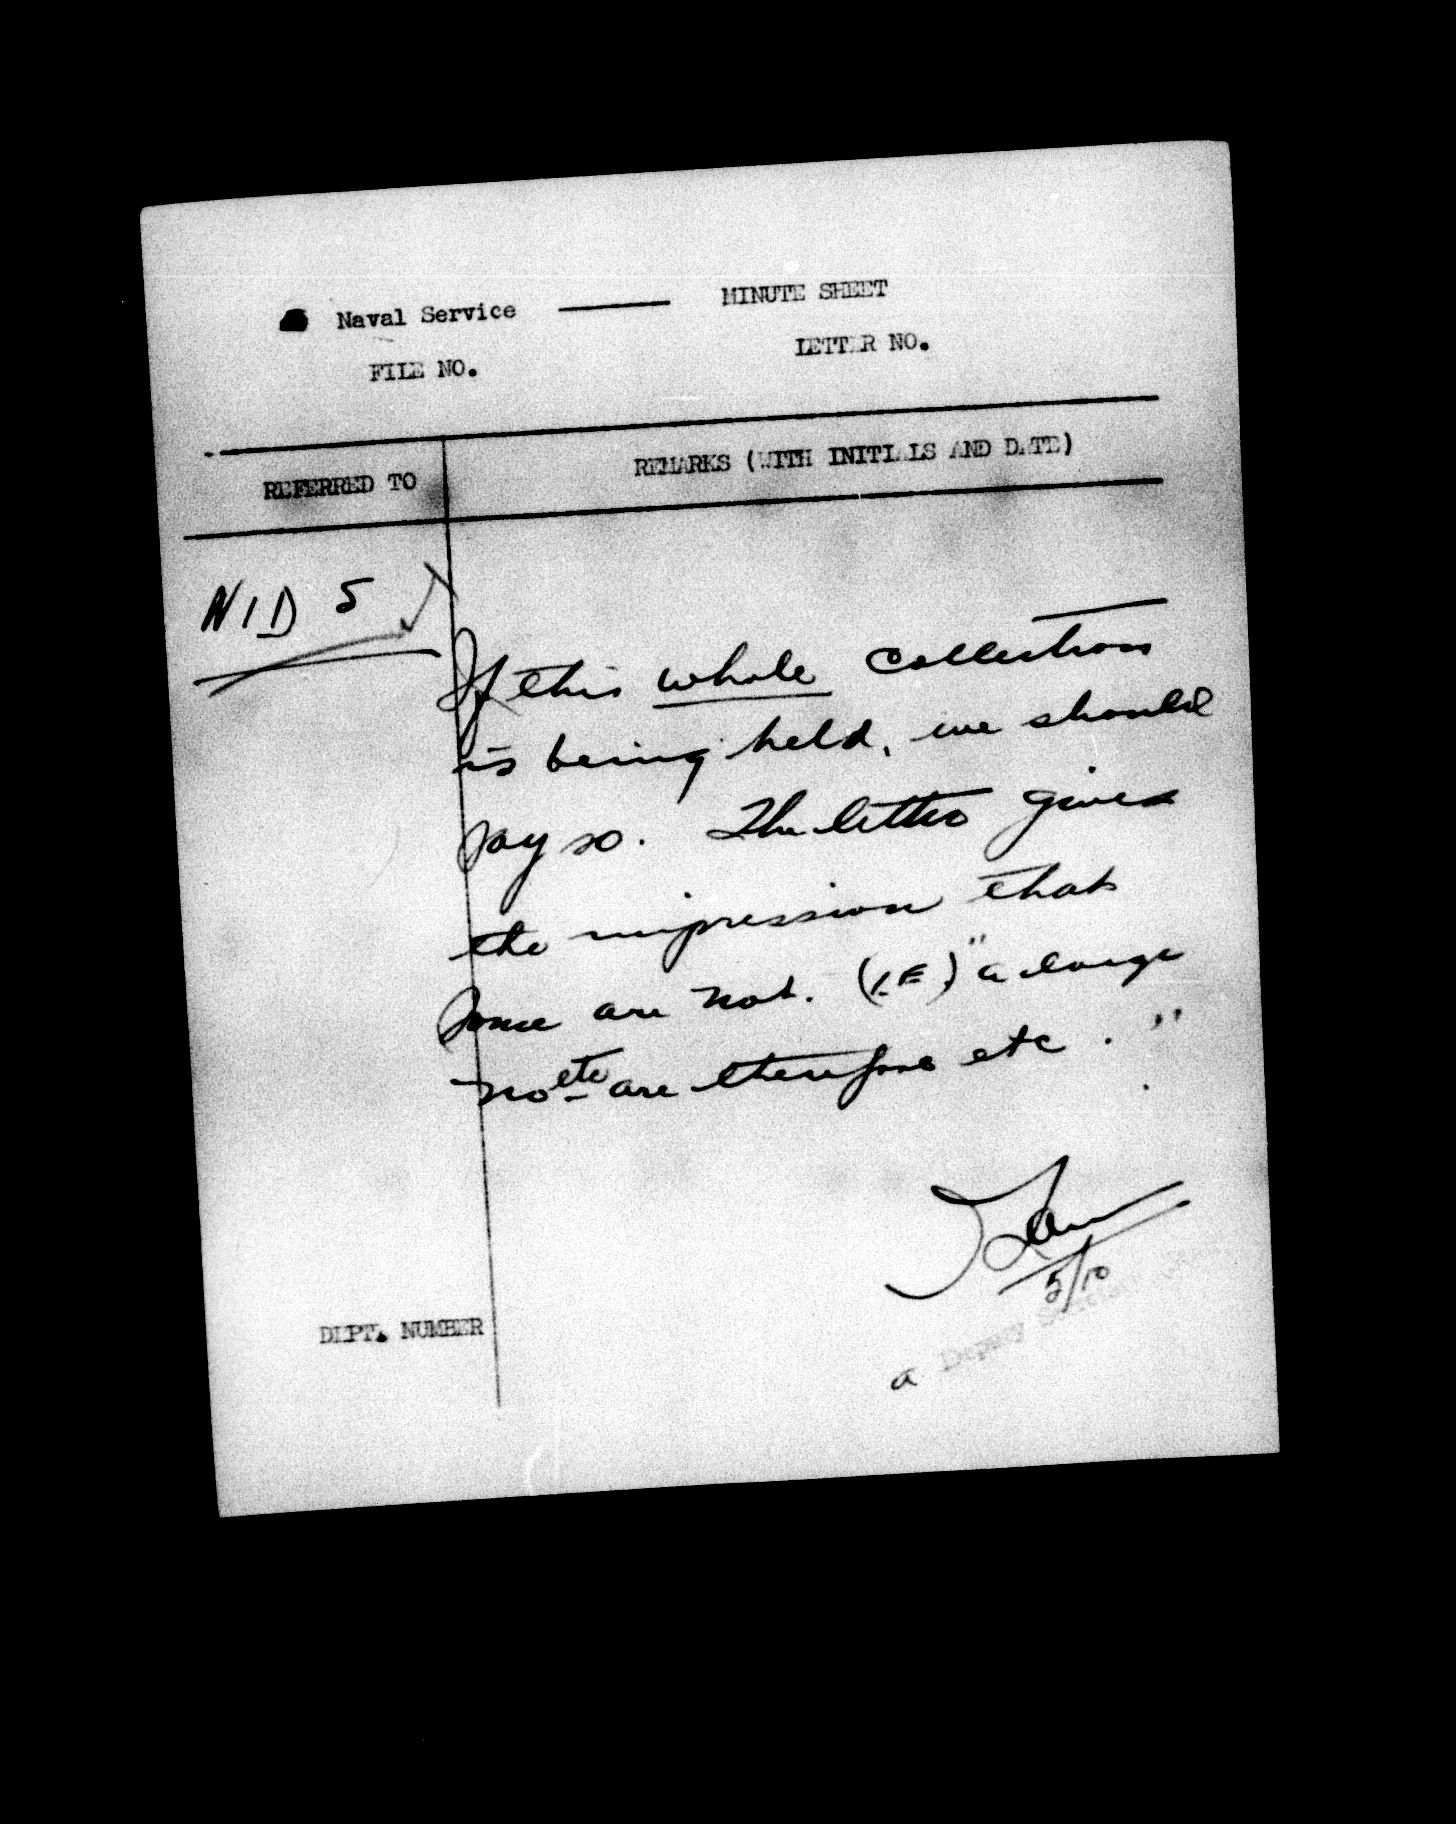 Naval Service —— MINUTE SHEET
FILE NO. LETTER NO.
REFERRED TO REMARKS (WITH INITIALS AND DATE)
NID 5
If this whole collection
is being held, we should
say so. The letter gives
the impression that
some are not. (I.E.) "a large
No etc are therefore etc. "
5/10
a Deputy
DEPT. NUMBER